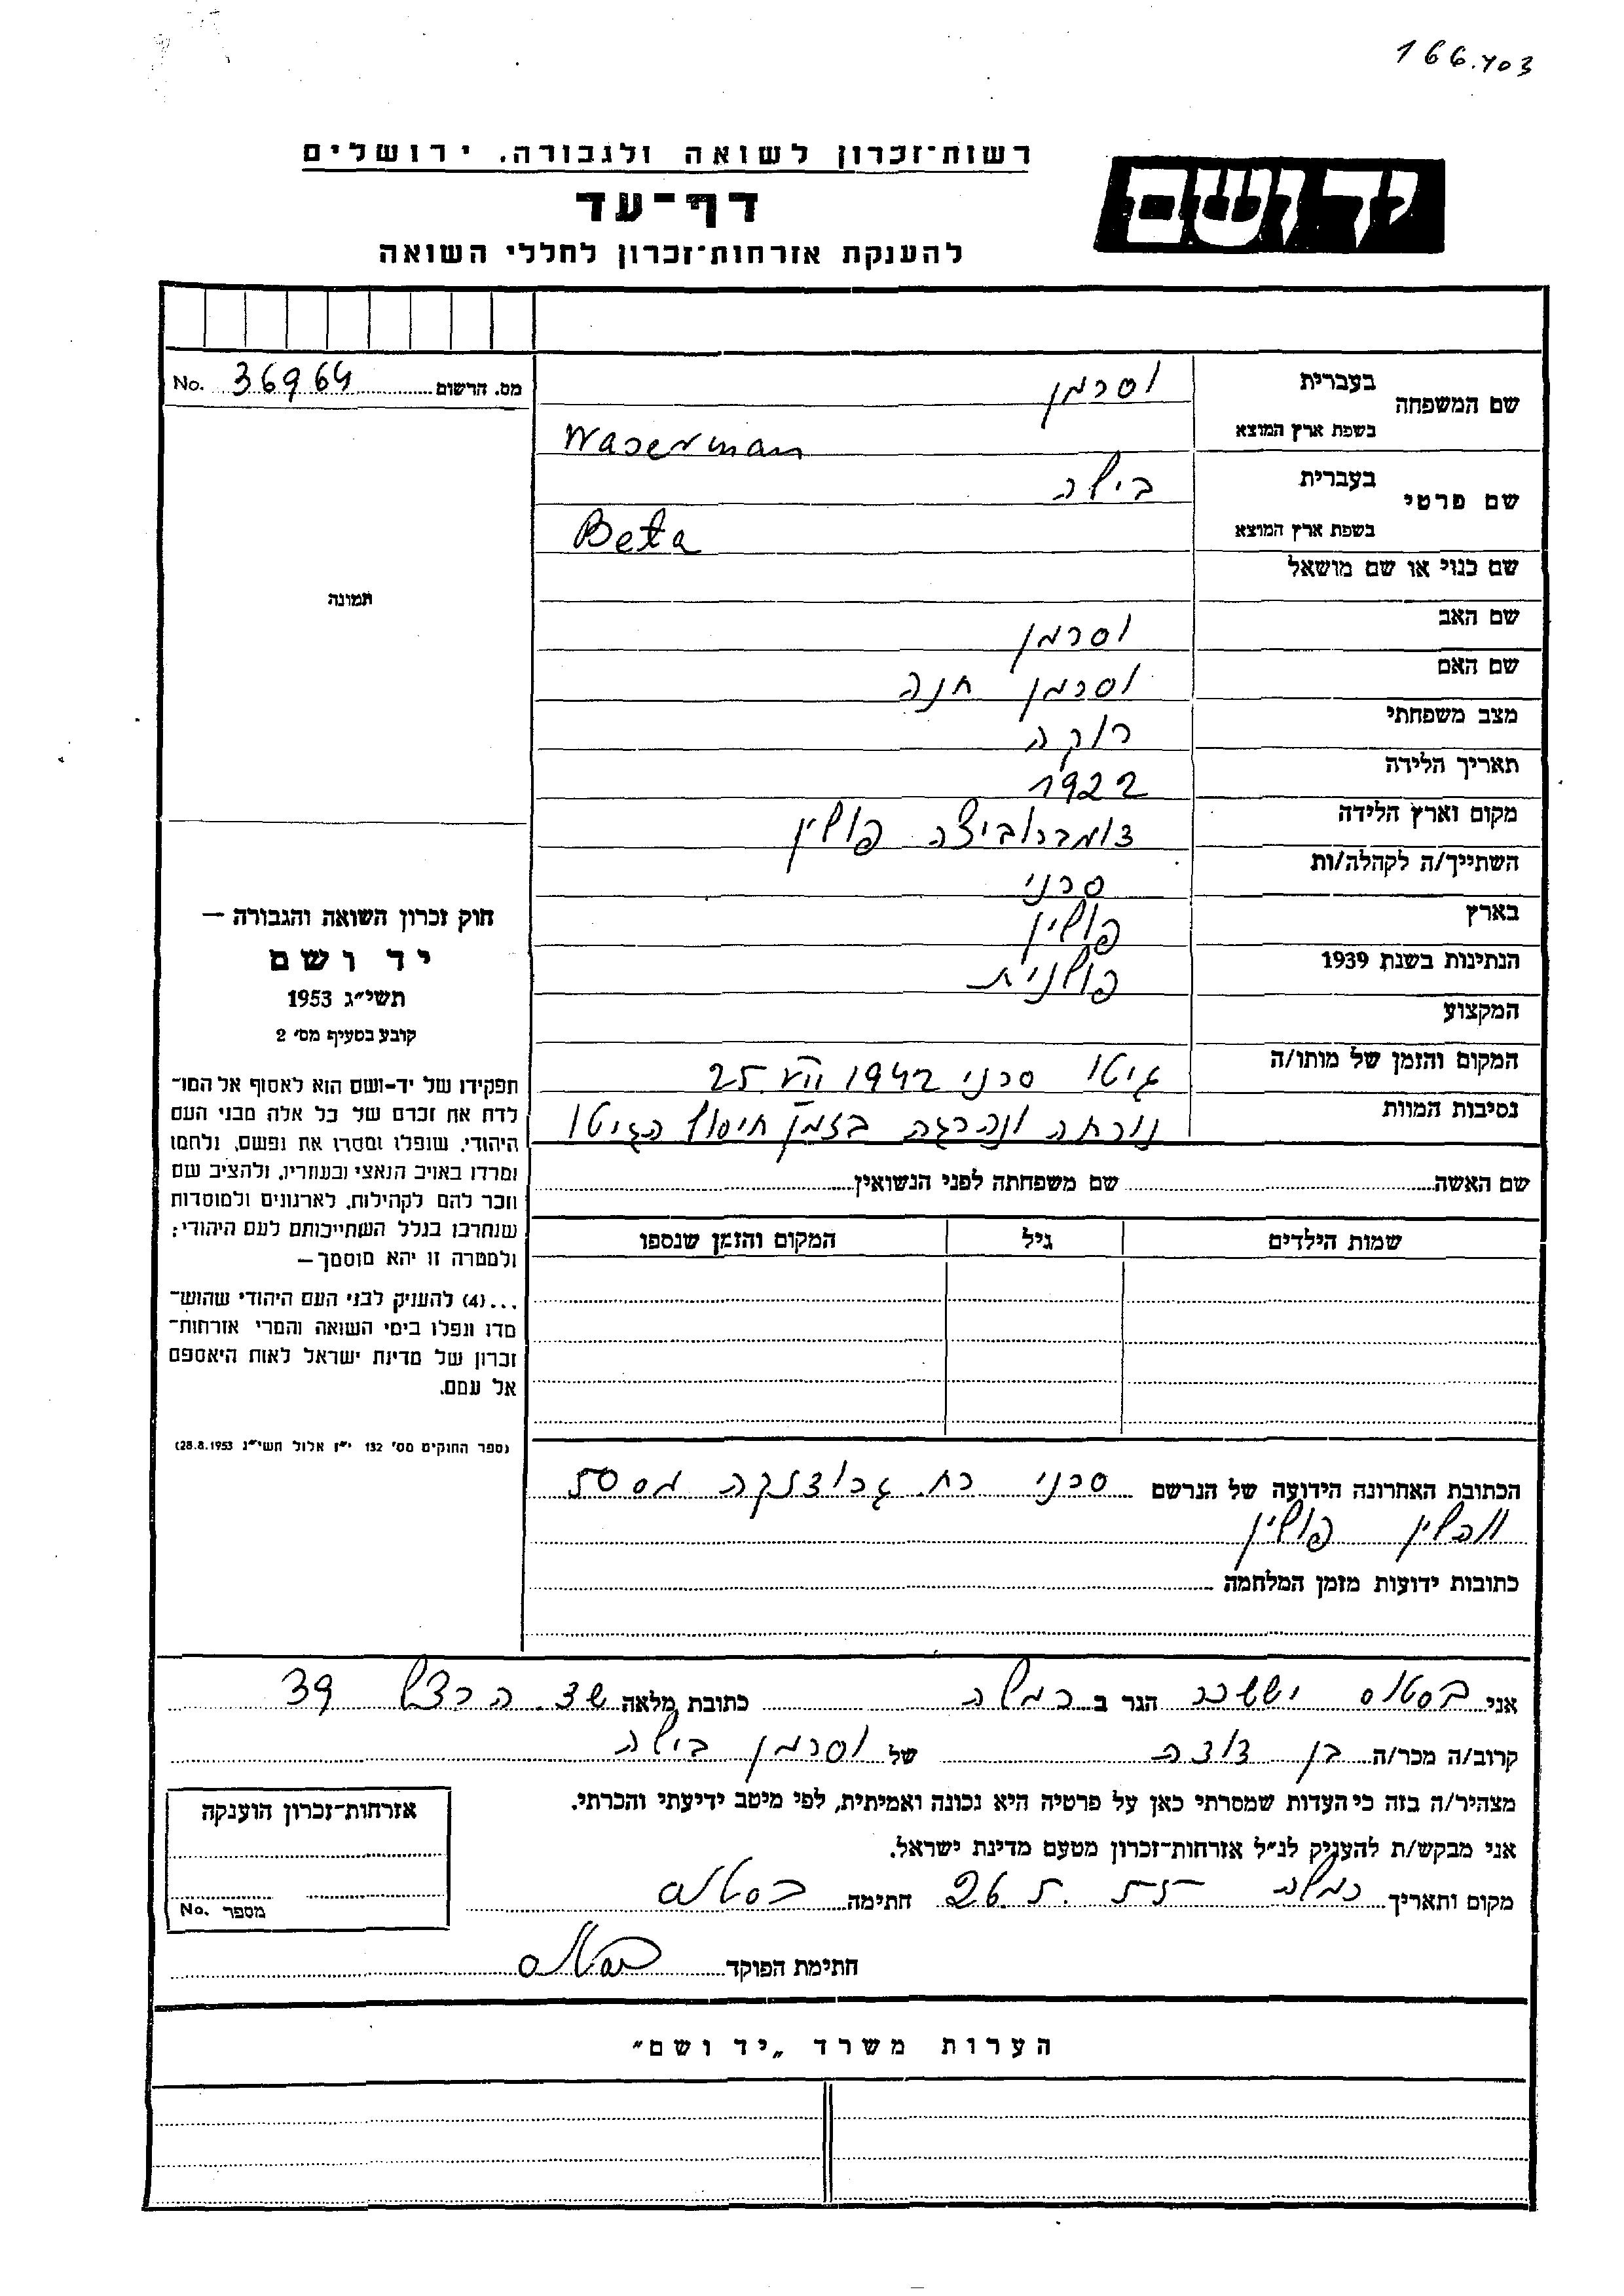 166.703
רשות־זכרון לשואה ולגבורה, ירושלים
יד ושם
דף־עד
להענקת אזרחות־זכרון לחללי השואה
מס. הרשום 36964 No.
שם המשפחה
בעברית וסרמן
בשפת ארץ המוצא Waserman
שם פרטי
בעברית בילה
בשפת ארץ המוצא Beta
שם כנוי או שם מושאל
שם האב וסרמן
שם האם וסרמן חנה
מצב משפחתי רוקה
תאריך הלידה 1922
מקום וארץ הלידה דומברוביצה פולין
השתייך/ה לקהלה/ות סרני
בארץ פולין
הנתינות בשנת 1939 פולנית
המקצוע
המקום והזמן של מותו/ה גיטו סרני 1942 25.
נסיבות המוות נורתה ונהרגה בזמן חיסול הגיטו
תמונה
חוק זכרון השואה והגבורה —
יד ושם
תשי"ג 1953
קובע בסעיף מס' 2
תפקידו של יד־ושם הוא לאסוף אל המו־
לדת את זכרם של כל אלה מבני העם
היהודי, שנפלו ומסרו את נפשם, נלחמו
ומרדו באויב הנאצי ובעוזריו, ולהציב שם
וזכר להם לקהילות, לארגונים ולמוסדות
שנחרבו בגלל השתייכותם לעם היהודי;
ולמטרה זו יהא מוסמך—
...(4) להעניק לבני העם היהודי שהוש־
מדו ונפלו בימי השואה והמרי אזרחות־
זכרון של מדינת ישראל לאות היאספם
אל עמם.
(ספר החוקים מס' 132 י"ז אלול תשי"ג 28.8.1953)
שם האשה שם משפחתה לפני הנשואין
שמות הילדים גיל המקום והזמן שנספו
הכתובת האחרונה הידועה של הנרשם סרני רח. מס 50
ווהלין פולין
כתובות ידועות מזמן המלחמה
אני יששכר הגר ב רמלה כתובת מלאה שד. הרצל 39
קרוב/ה מכר/ה בן דודה של וסרמן בילה
מצהיר/ה בזה כי העדות שמסרתי כאן על פרטיה היא נכונה ואמיתית, לפי מיטב ידיעתי והכרתי.
אני מבקש/ת להעניק לנ"ל אזרחות־זכרון מטעם מדינת ישראל.
מקום ותאריך רמלה חתימה
חתימת הפוקד
אזרחות־זכרון הוענקה
מספר No.
הערות משרד „יד ושם"